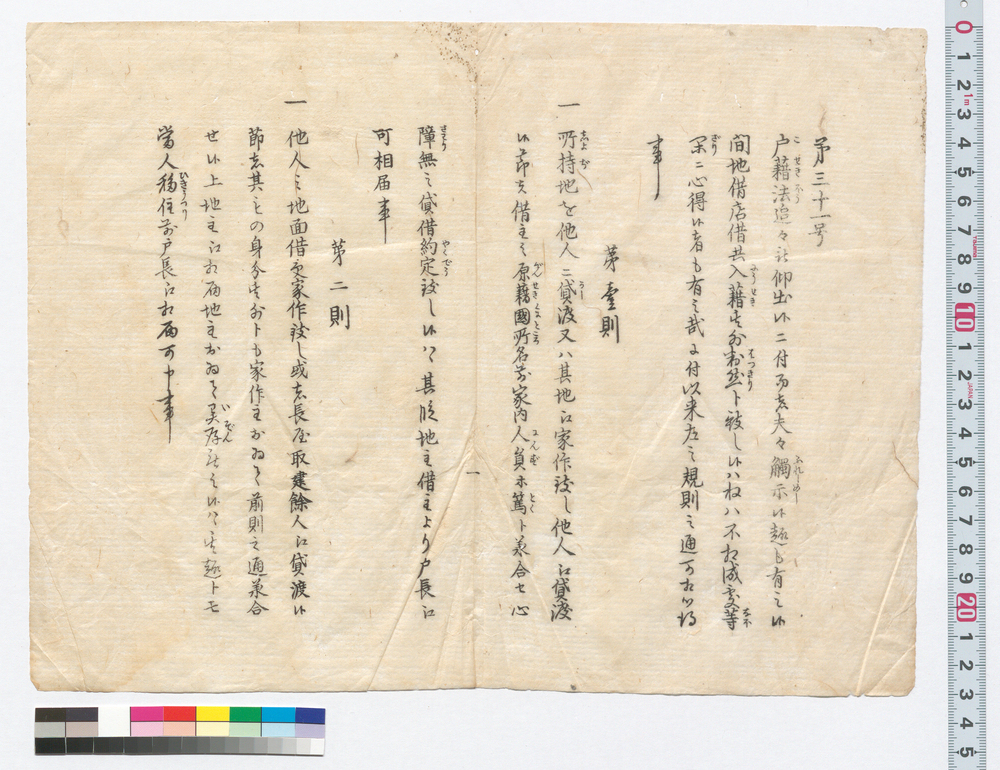 第三十一号
戸藉法追々被仰出候ニ付而者夫々觸示候趣も有之候
間地借店借共入藉其外判然ト致し候ハねハ不相成之處等
閑ニ心得候者も有之哉ニ付以来左之規則之通可相心得
事
第壹則
一所持地を他人ニ貸渡又ハ其地江家作致し他人江貸渡
候節者借主之原藉國所名前家内人員等篤ト承合セ心
障無之貸借約定致し候ハヽ其段地主借主より戸長江
可相届事
第二則
一他人之地面借受家作致し或者長屋取建餘人江貸渡候
節者其ものの身分其外トも家作主おゐて前則之通承合
せ候上地主江相届地主おゐて異存無之候ハヽ其趣トモ
當人移住前戸長江相届可申事
一
0 1 2 3 4 5 6 7 8 9 10 1 2 3 4 5 6 7 8 9 20 1 2 3 4 5
1m
JAPAN